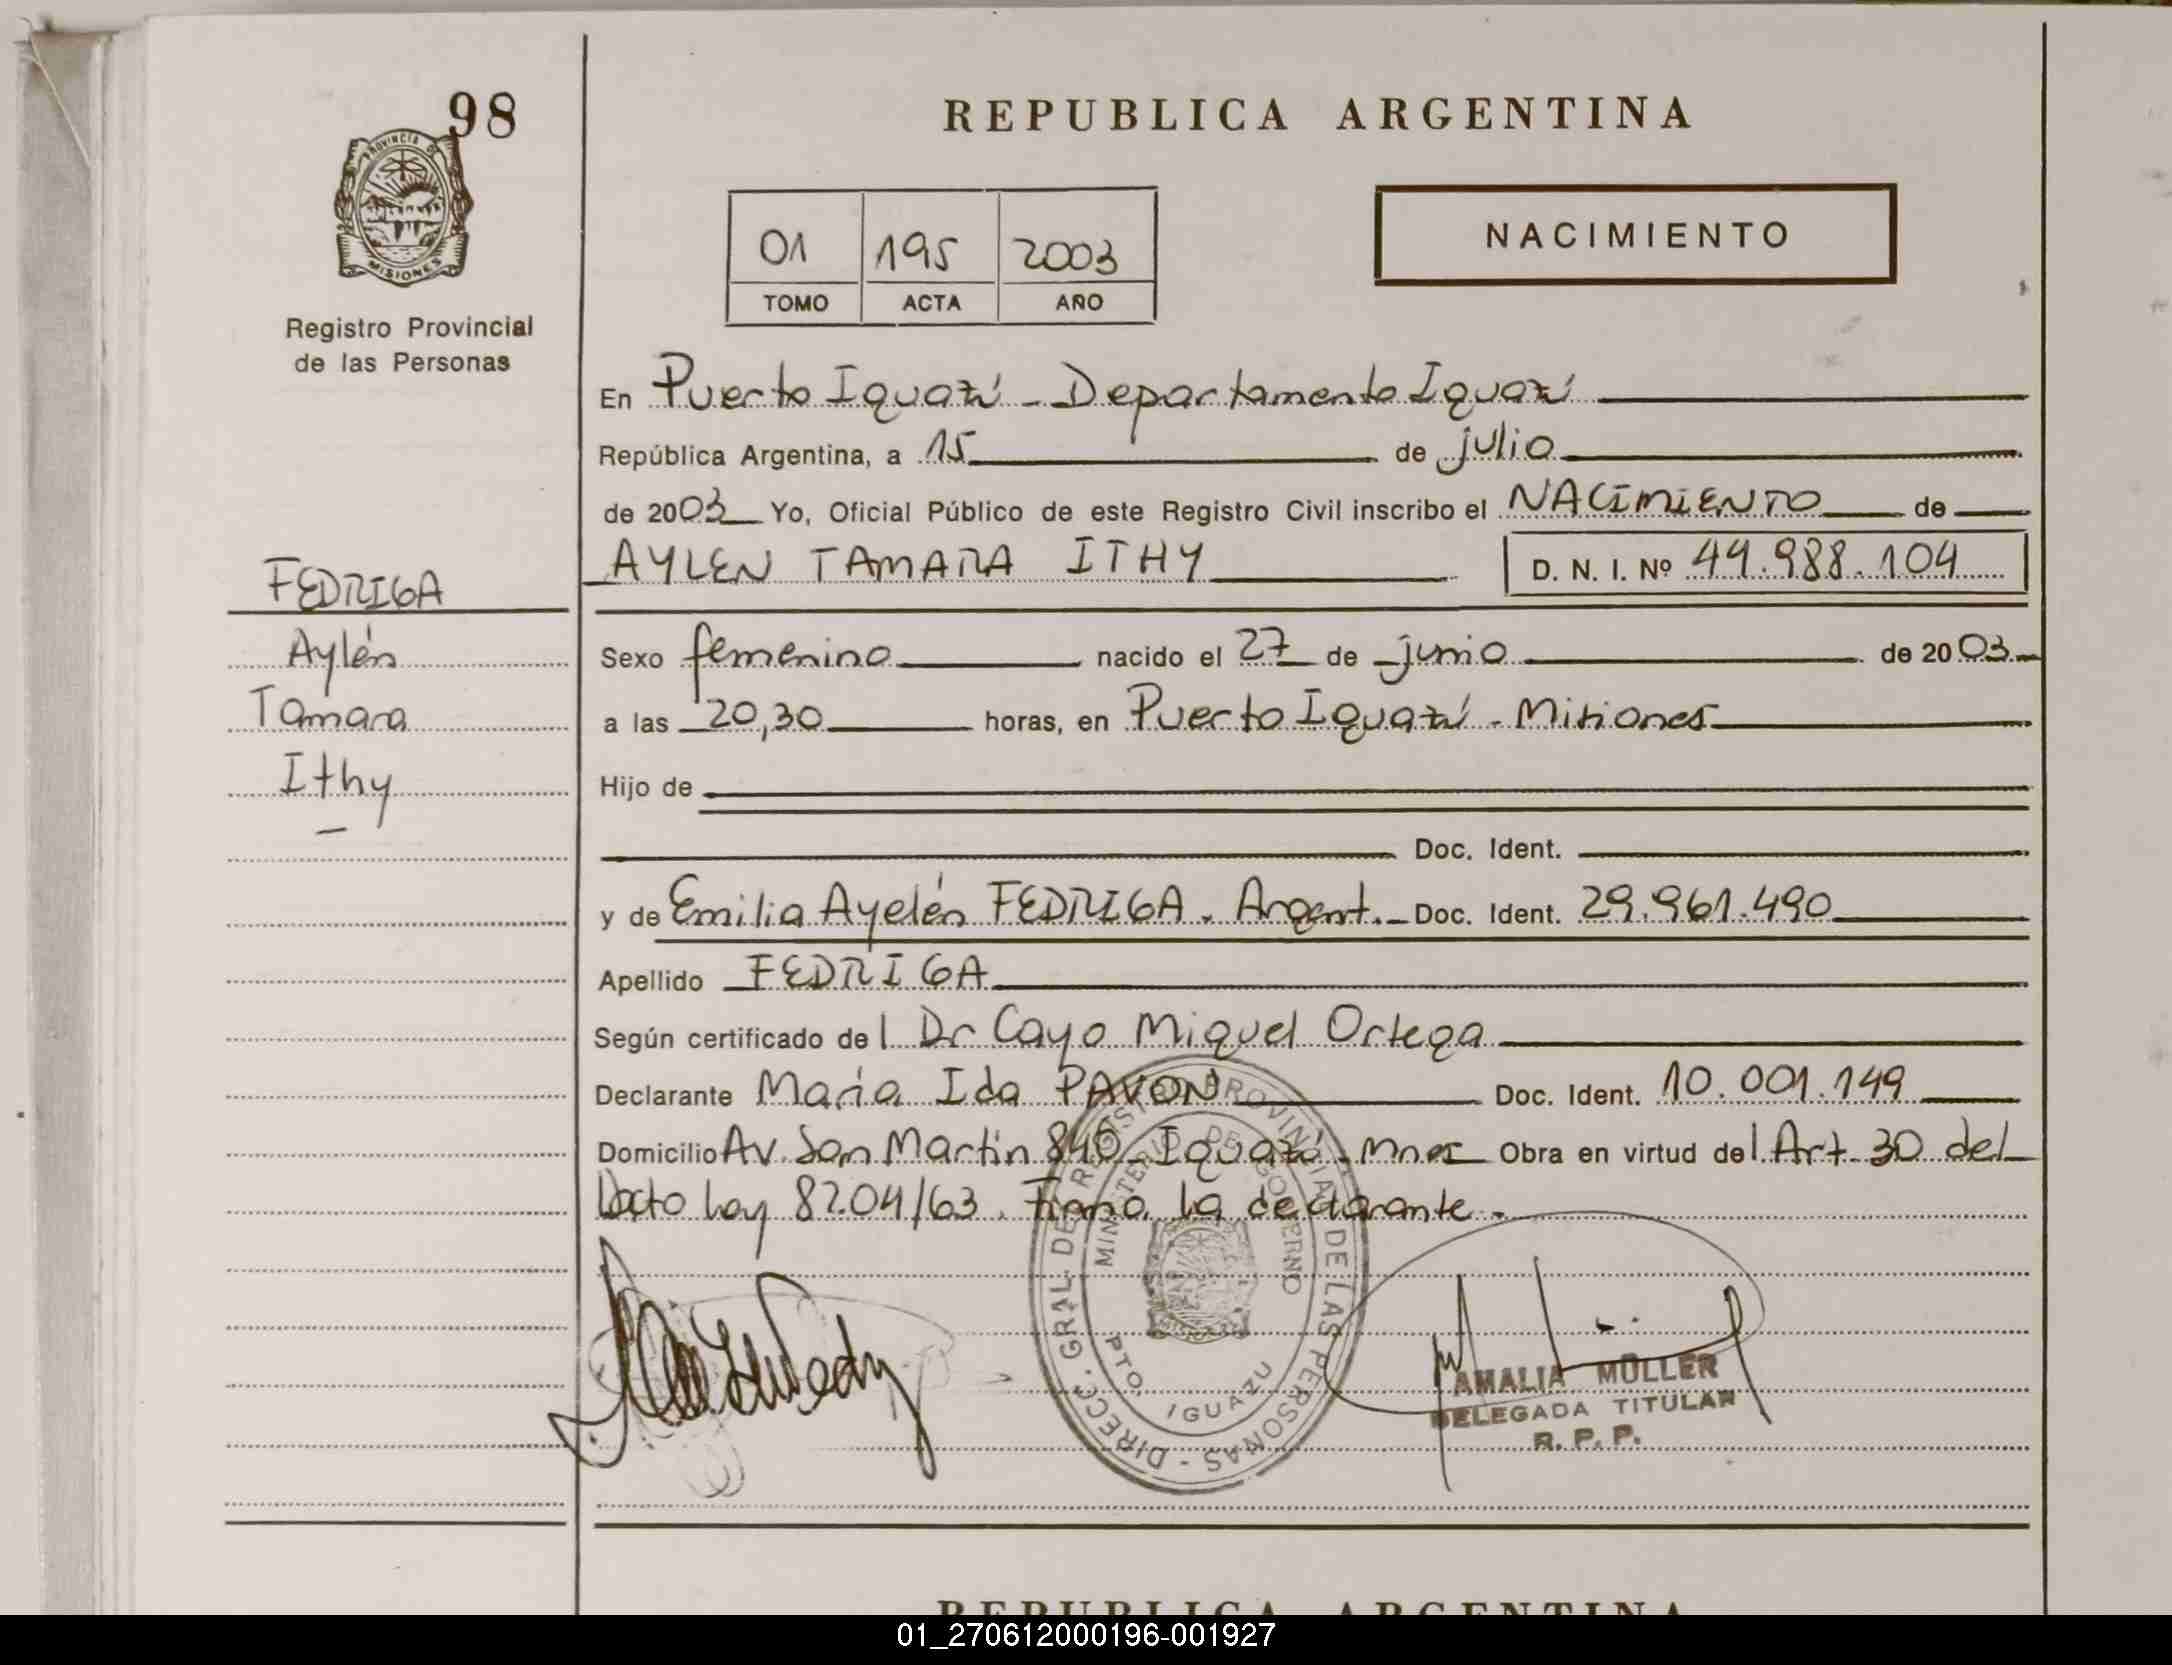 98
REPUBLICA ARGENTINA
PROVINCIA DE
MISIONES
Registro Provincial
de las Personas
01 195 2003
TOMO ACTA AÑO
NACIMIENTO
En Puerto Iguazú - Departamento Iguazú
República Argentina, a 15 de julio
de 2003 Yo, Oficial Público de este Registro Civil inscribo el NACIMIENTO de
AYLEN TAMARA ITHY D. N. I. Nº 44.988.104
FEDRIGA
Aylén
Tamara
Ithy
Sexo femenino nacido el 27 de junio de 2003
a las 20,30 horas, en Puerto Iguazú - Misiones
Hijo de
Doc. Ident.
y de Emilia Ayelén FEDRIGA. Argent. Doc. Ident. 29.961.490
Apellido FEDRIGA
Según certificado del Dr Cayo Miguel Ortega
Declarante María Ida PAVON Doc. Ident. 10.001.149
Domicilio Av. San Martín 840 - Iguazú - Mnes Obra en virtud del Art 30 del
Dcto Ley 8204/63. Firma la declarante.
DIRECC. GRAL. DE REGISTRO PROVINCIAL DE LAS PERSONAS -
MINISTERIO DE GOBIERNO
PTO. IGUAZU
AMALIA MÜLLER
DELEGADA TITULAR
R. P. P.
REPUBLICA ARGENTINA
01_270612000196-001927